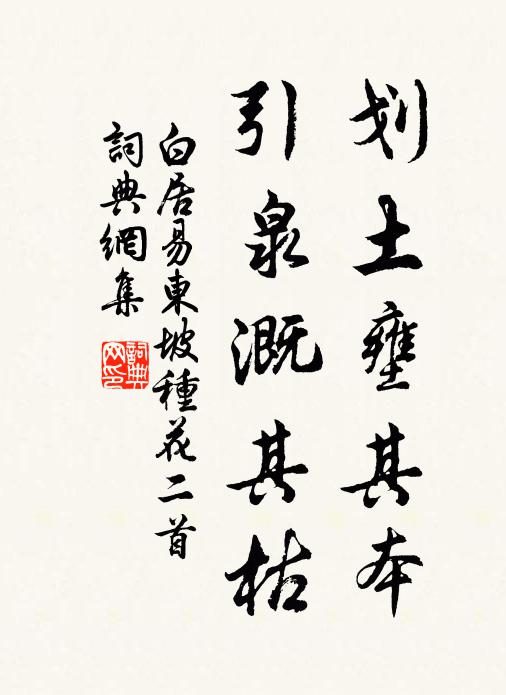 划土壅其本
引泉溉其枯
白居易東坡種花二首
詞典網集
詞典
网印